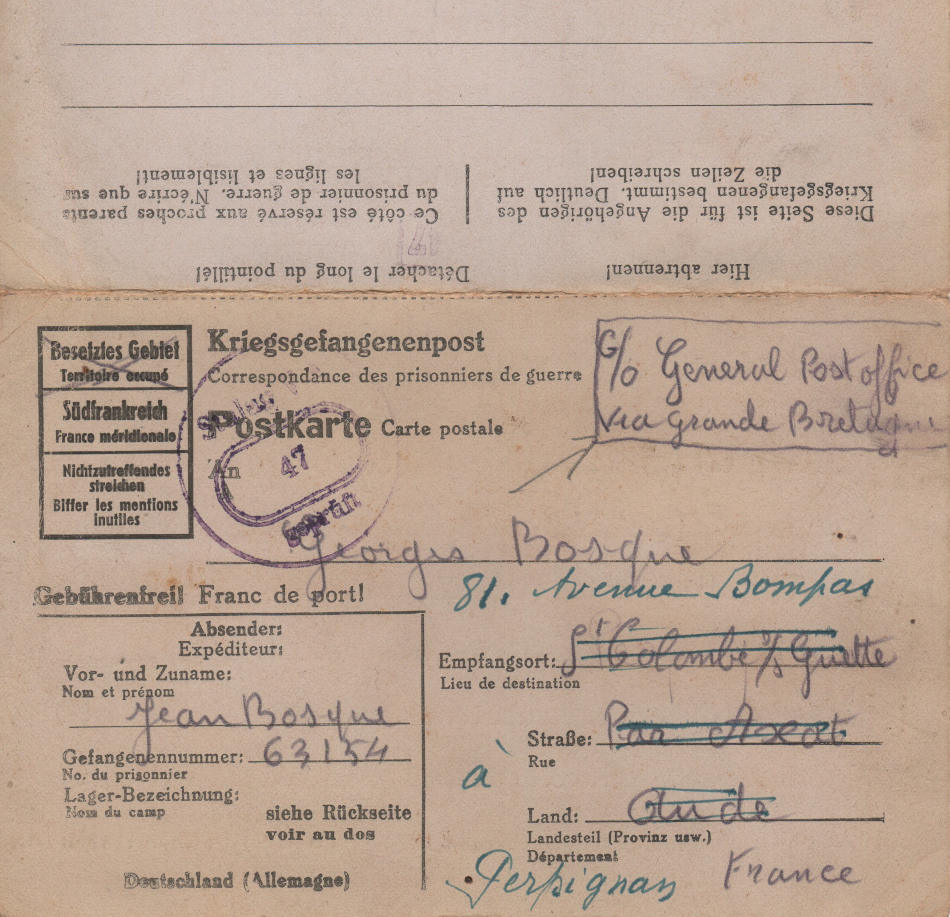 Hier abtrennen!
Détacher le long du pointillé!
Diese Seite ist für die Angehörigen des
Kriegsgefangenen bestimmt. Deutlich auf
die Zeilen schreiben!
Ce côté est réservé aux proches parents
du prisonnier de guerre. N'écrire que sur
les lignes et lisiblement!
Besetztes Gebiet
Territoire occupé
Südfrankreich
France méridionale
Nichtzutreffendes
streichen
Biffer les mentions
inutiles
Kriegsgefangenenpost
Correspondance des prisonniers de guerre
Postkarte Carte postale
An
47
Geprüft
C/o General Post office
via Grande Bretagne
Georges Bosque
81. Avenue Bompas
Gebührenfrei! Franc de port!
Absender:
Expéditeur:
Vor- und Zuname:
Nom et prénom
Jean Bosque
Gefangenennummer: 63154
No. du prisonnier
Lager-Bezeichnung:
Nom du camp
siehe Rückseite
voir au dos
Deutschland (Allemagne)
Empfangsort: St Colombe s/ Guette
Lieu de destination
Straße: Par Axat
Rue
à
Land: Aude
Landesteil (Provinz usw.)
Département
Perpignan France